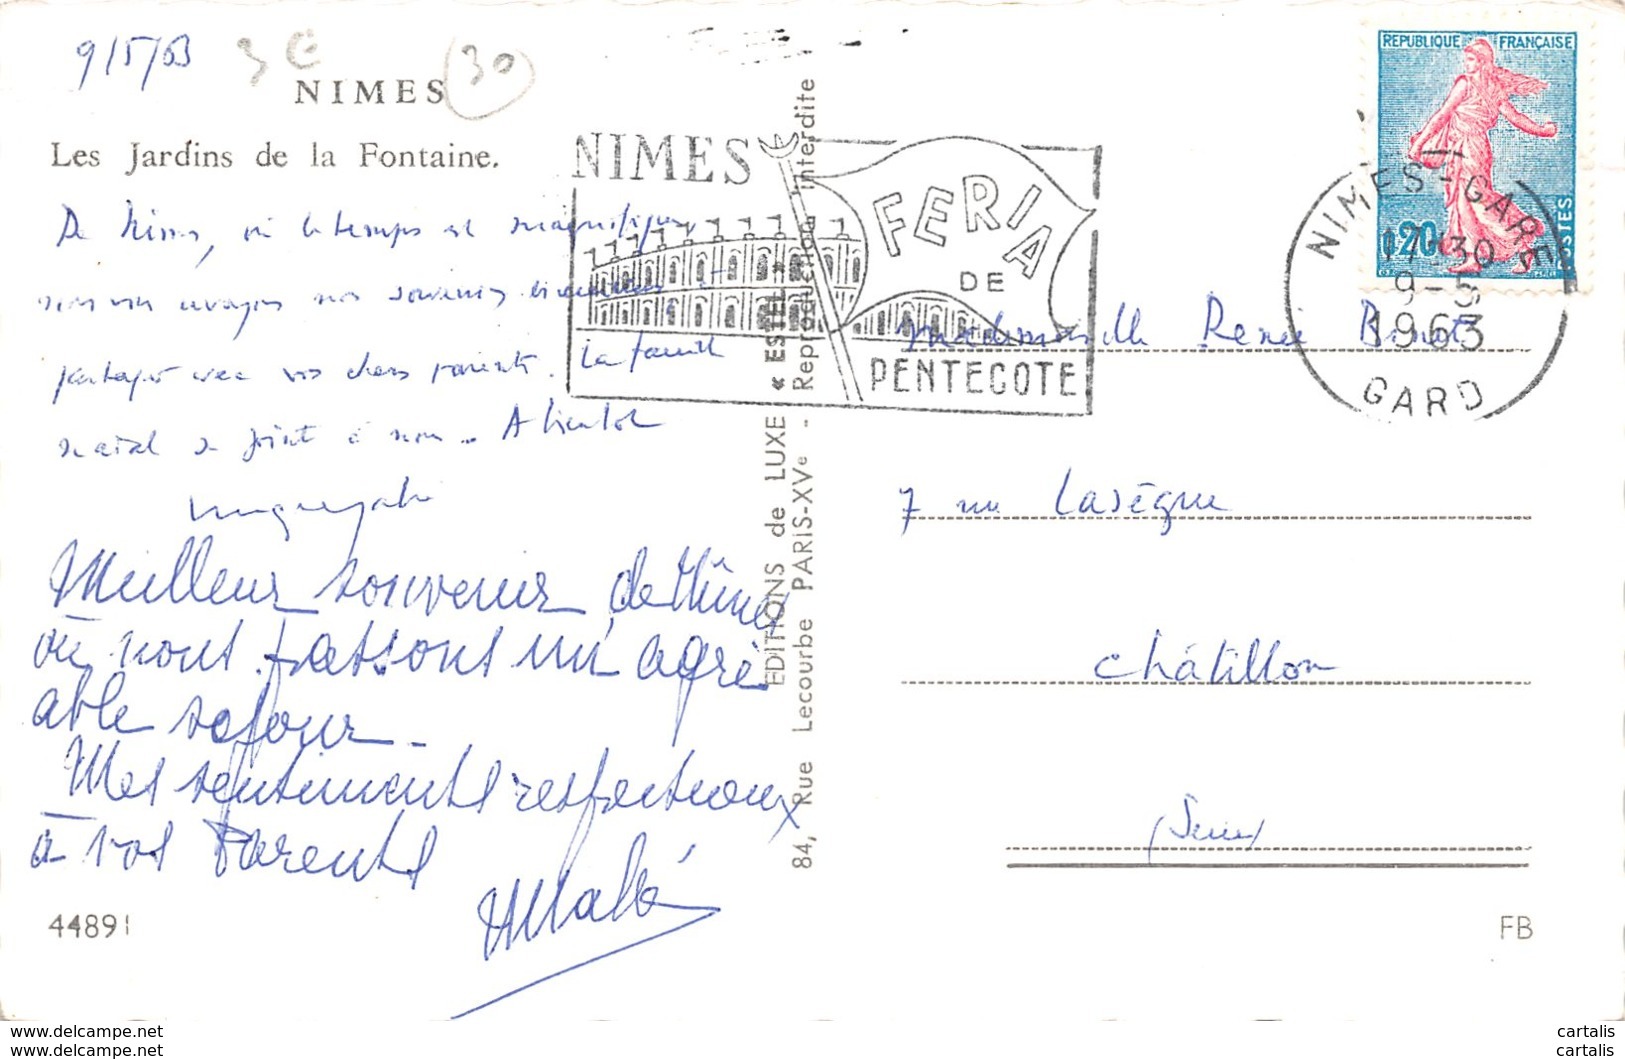 9/5/63
3 €
30
NIMES
Les Jardins de la Fontaine.
De Nimes, où le temps est magnifique,
nous vous envoyons nos souvenirs
partager avec vos chers parents. La famille
se joint à nous. A bientôt
Meilleur souvenir de Nîmes
où nous passons un agré
able séjour.
Mes sentiments respectueux
à vos Parents
44891
EDITIONS de LUXE « ESTEL »
84, Rue Lecourbe PARIS-XVe - Reproduction Interdite
NIMES
FERIA
DE
PENTECOTE
REPUBLIQUE FRANÇAISE
0,20
POSTES
NIMES-GARE
17-30
9-5
1963
GARD
Mademoiselle Renée
7 rue Lasègue
Châtillon
(Seine)
FB
www.delcampe.net
www.delcampe.net
cartalis
cartalis